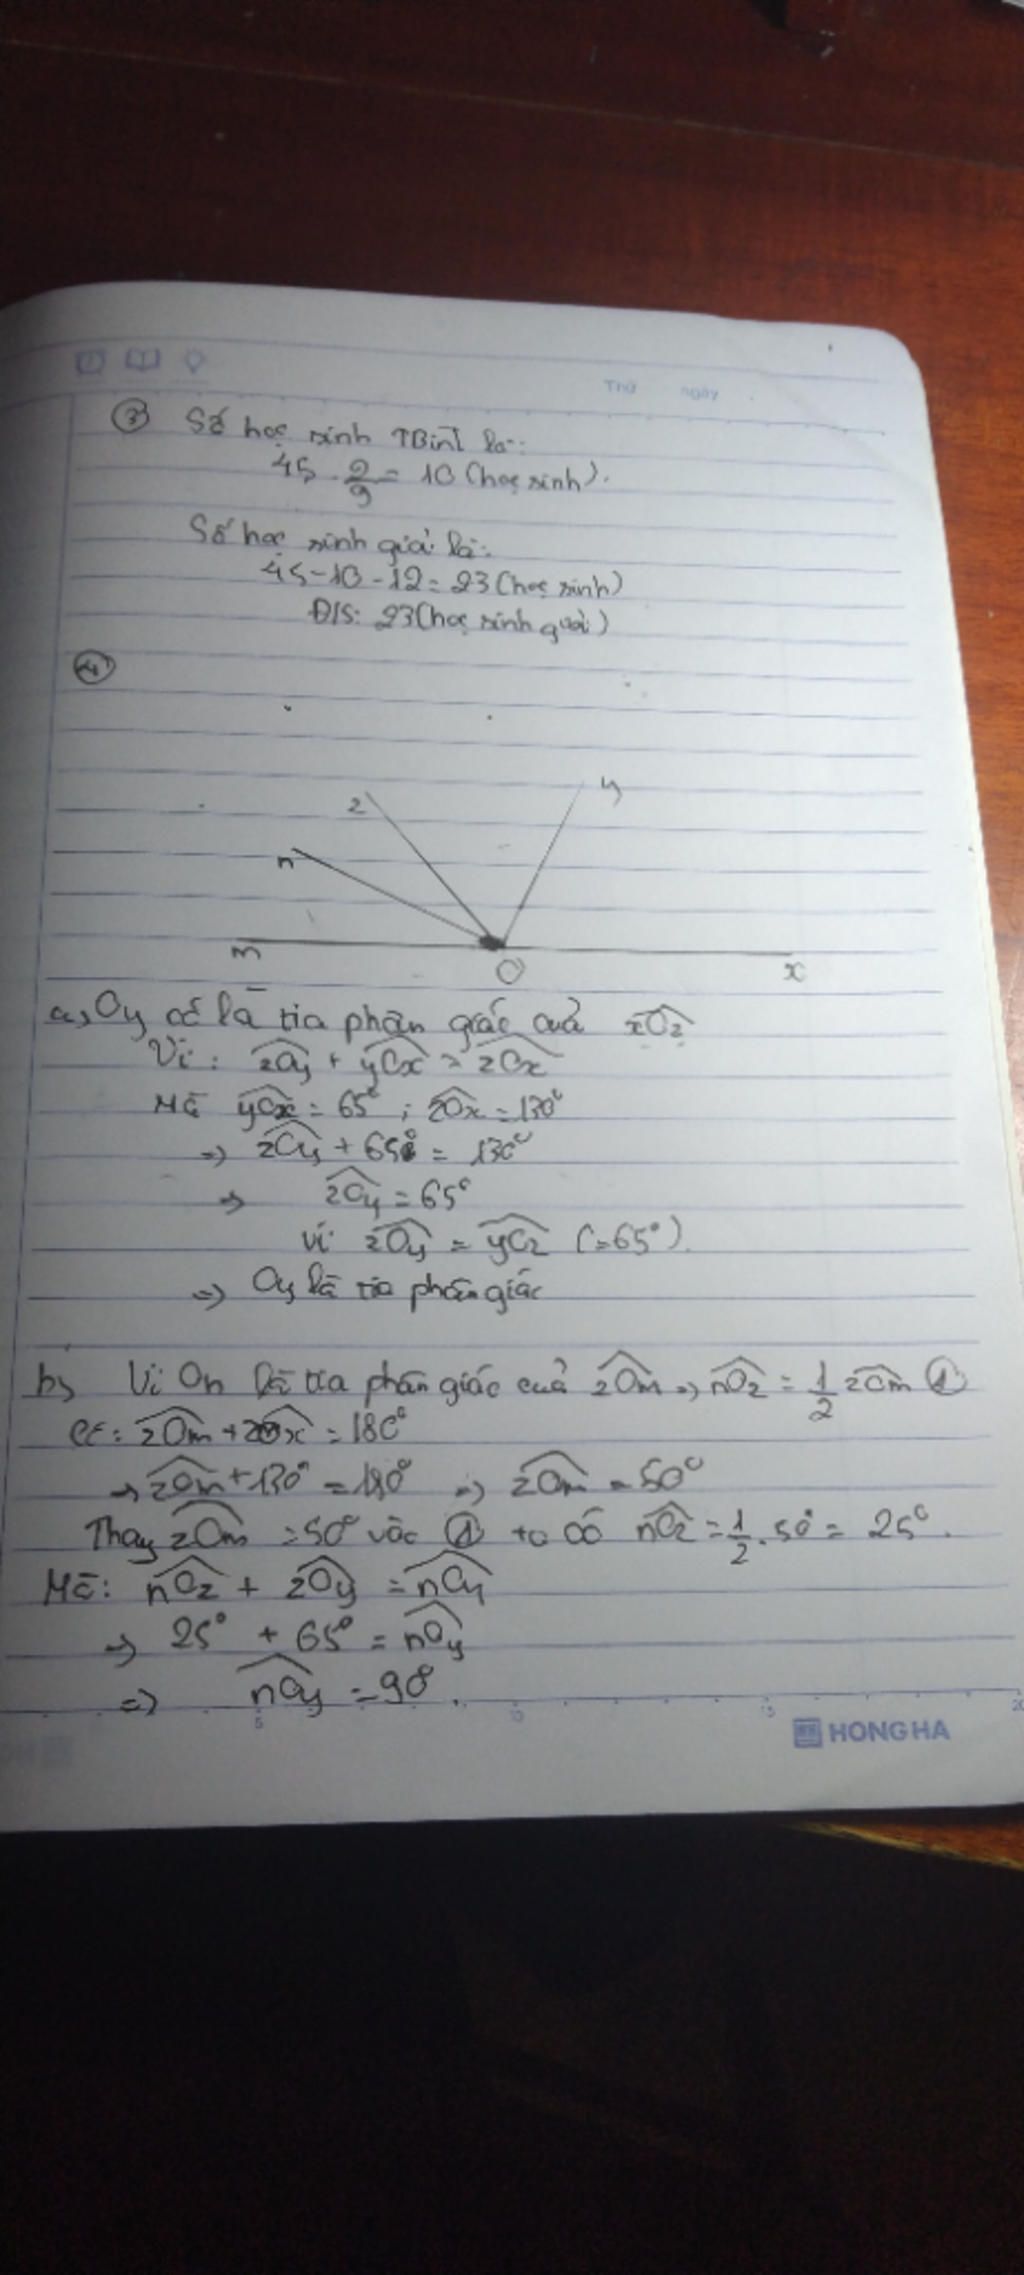 Thứ ngày
③ Số học sinh TBình là:
45 . 2/9 = 10 (học sinh).
Số học sinh giỏi là:
45 - 10 - 12 = 23 (học sinh)
Đ/S: 23 (học sinh giỏi)
④
z y
n
m O x
a, Oy có là tia phân giác của xOz
Vì: zOy + yOx = zOx
Mà yOx = 65° ; zOx = 130°
=> zOy + 65° = 130°
=> zOy = 65°
Vì zOy = yOz (=65°).
=> Oy là tia phân giác
b, Vì On là tia phân giác của zOm => nOz = 1/2 zOm ①
Có: zOm + zOx = 180°
=> zOm + 130° = 180° => zOm = 50°
Thay zOm = 50° vào ① ta có nOz = 1/2 . 50° = 25°.
Mà: nOz + zOy = nOy
=> 25° + 65° = nOy
=> nOy = 90°.
5 10 15 20
HONG HA